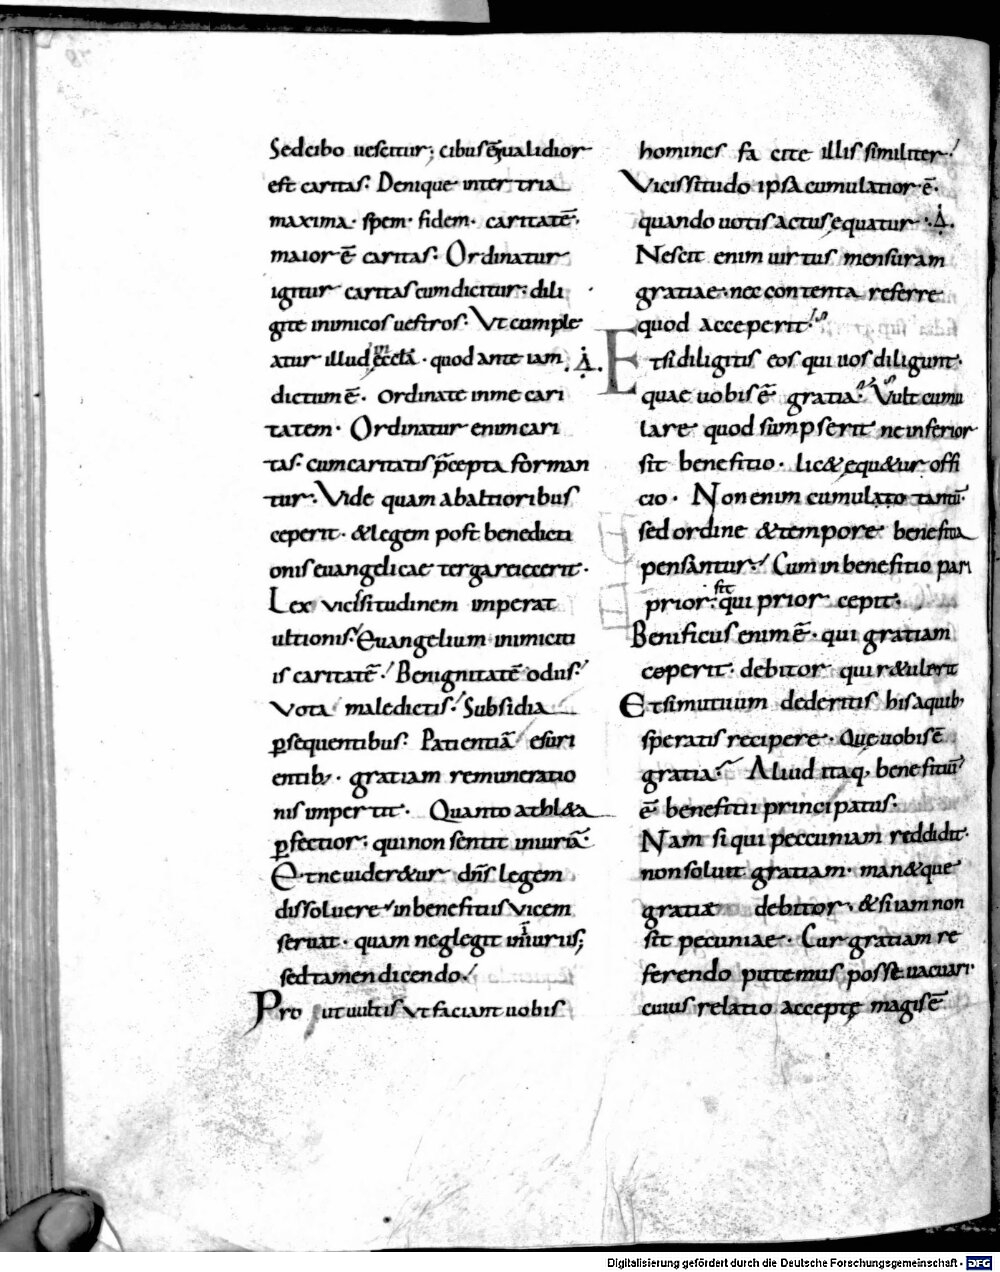 Sed cibo uescitur; cibus eq; ualidior
est caritas. Denique inter tria
maxima. spem. fidem. caritatē.
maior ē caritas. Ordinatur
igitur caritas cum dicitur; dili
gite inimicos uestros. Ut comple
atur illud in eccla. quod ante iam .A.
dictum ē. Ordinate in me cari
tatem. Ordinatur enim cari
tas. cum caritatis p̄cepta forman
tur. Vide quam ab altioribus
ceperit. & legem post benedicti
onis euangelicae terga reiecerit.
Lex vicissitudinem imperat
ultionis. Euangelium inimiciti
is caritatē. Benignitatē odiis.
Vota maledictis. Subsidia
ꝑsequentibus. Patientiā esuri
entib; gratiam remuneratio
nis impertit. Quanto athl&a
ꝑfectior; qui non sentit iniuriā.
Et ne uider&ur dn̄s legem
dissoluere in benefitiis vicem
seruat. quam neglegit iniuriis;
sed tamen dicendo.
Pro ut uultis ut faciant uobis
homines fa cite illis similiter.
Vicissitudo ipsa cumulatior ē.
quando uotis actus equatur. .A.
Nescit enim uirtus mensuram
gratiae. nec contenta referre
quod acceperit.
Et si diligitis eos qui uos diligunt.
quae uobis ē gratia. Vult cumu
lare quod sumpserit ne inferior
sit benefitio. lic& equ&ur offi
cio. Non enim cumulato tantū.
sed ordine & tempore benefitia
pensantur. Cum in benefitio pari
prior sit qui prior cepit.
Benificus enim ē. qui gratiam
ceperit. debitor qui r&ulerit
Et si mutuum dederitis his a quib;
speratis recipere. Que uobis ē
gratia. Aliud itaq; benefitiū
ē benefitii principatus.
Nam si qui peccuniam reddidit.
non soluit gratiam. man&que
gratiae debitor. & si iam non
sit pecuniae. Cur gratiam re
ferendo putemus posse uacuari
cuius relatio accepte magis ē
Digitalisierung gefördert durch die Deutsche Forschungsgemeinschaft - DFG